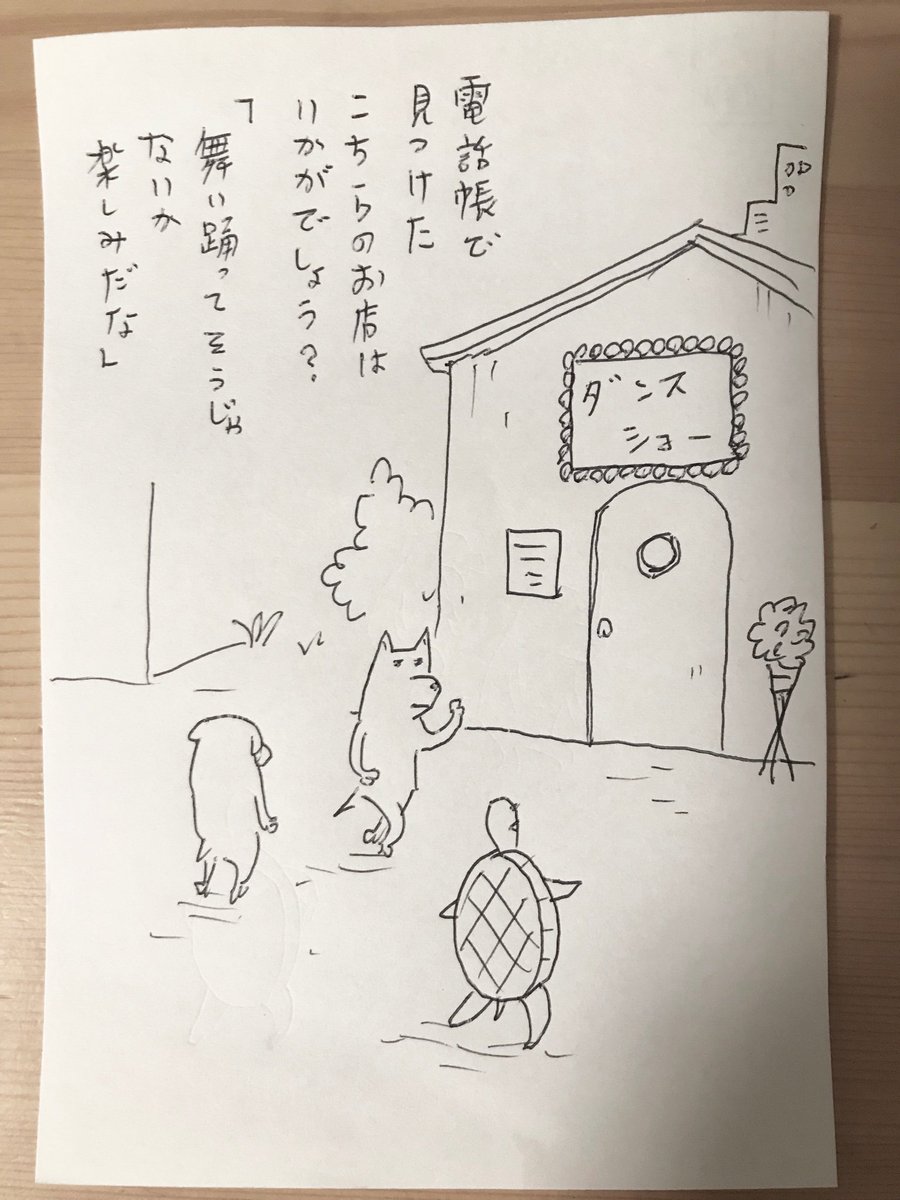 電話帳で
見つけた
こちらのお店は
いかがでしょう?
「舞い踊ってそうじゃ
ないか
楽しみだな」
ダンス
ショー